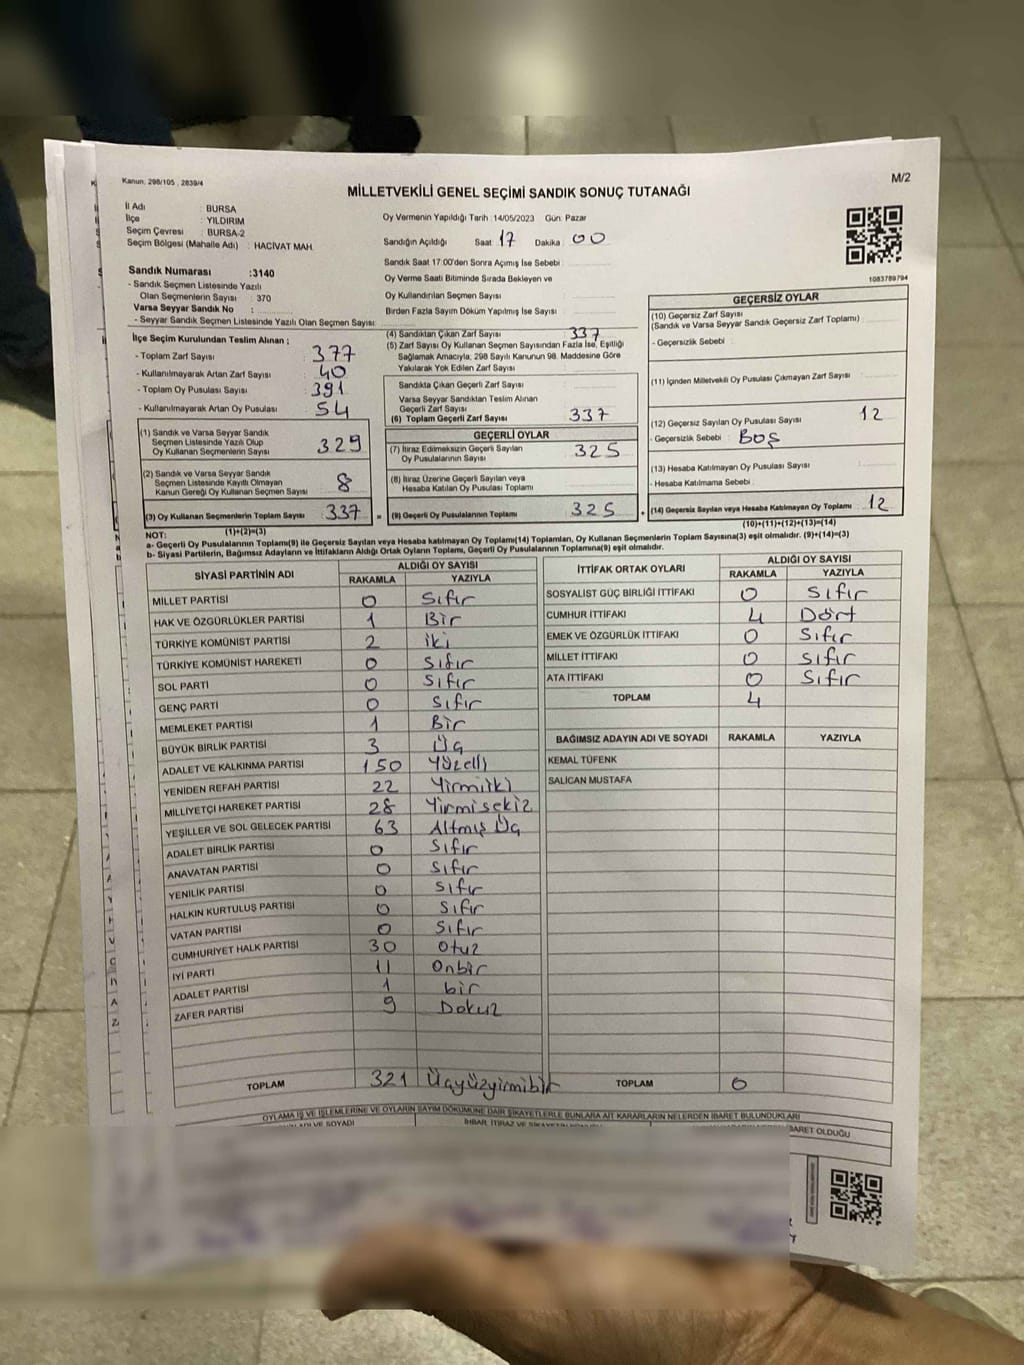 Kanun: 298/105 , 2839/4
M/2
MİLLETVEKİLİ GENEL SEÇİMİ SANDIK SONUÇ TUTANAĞI
İl Adı : BURSA
İlçe : YILDIRIM
Seçim Çevresi : BURSA-2
Seçim Bölgesi (Mahalle Adı) : HACİVAT MAH.
Oy Vermenin Yapıldığı Tarih :14/05/2023 Gün: Pazar
Sandığın Açıldığı Saat 17 Dakika : 00
Sandık Saat 17:00'den Sonra Açımış İse Sebebi :
Oy Verme Saati Bitiminde Sırada Bekleyen ve
Oy Kullandırılan Seçmen Sayısı
Birden Fazla Sayım Döküm Yapılmış İse Sayısı :
1083789794
Sandık Numarası :3140
- Sandık Seçmen Listesinde Yazılı
Olan Seçmenlerin Sayısı : 370
Varsa Seyyar Sandık No :
- Seyyar Sandık Seçmen Listesinde Yazılı Olan Seçmen Sayısı:
İlçe Seçim Kurulundan Teslim Alınan ;
- Toplam Zarf Sayısı : 377
- Kullanılmayarak Artan Zarf Sayısı : 40
- Toplam Oy Pusulası Sayısı : 391
- Kullanılmayarak Artan Oy Pusulası : 54
(1) Sandık ve Varsa Seyyar Sandık
Seçmen Listesinde Yazılı Olup
Oy Kullanan Seçmenlerin Sayısı 329
(2) Sandık ve Varsa Seyyar Sandık
Seçmen Listesinde Kayıtlı Olmayan
Kanun Gereği Oy Kullanan Seçmen Sayısı 8
(3) Oy Kullanan Seçmenlerin Toplam Sayısı 337
(1)+(2)=(3)
(4) Sandıktan Çıkan Zarf Sayısı 337
(5) Zarf Sayısı Oy Kullanan Seçmen Sayısından Fazla İse, Eşitliği
Sağlamak Amacıyla, 298 Sayılı Kanunun 98. Maddesine Göre
Yakılarak Yok Edilen Zarf Sayısı
Sandıkta Çıkan Geçerli Zarf Sayısı
Varsa Seyyar Sandıktan Teslim Alınan
Geçerli Zarf Sayısı
(6) Toplam Geçerli Zarf Sayısı 337
GEÇERLİ OYLAR
(7) İtiraz Edilmeksizin Geçerli Sayılan
Oy Pusulalarının Sayısı 325
(8) İtiraz Üzerine Geçerli Sayılan veya
Hesaba Katılan Oy Pusulası Toplamı
= (9) Geçerli Oy Pusulalarının Toplamı 325
GEÇERSİZ OYLAR
(10) Geçersiz Zarf Sayısı
(Sandık ve Varsa Seyyar Sandık Geçersiz Zarf Toplamı) :
- Geçersizlik Sebebi :
(11) İçinden Milletvekili Oy Pusulası Çıkmayan Zarf Sayısı :
(12) Geçersiz Sayılan Oy Pusulası Sayısı 12
- Geçersizlik Sebebi : Boş
(13) Hesaba Katılmayan Oy Pusulası Sayısı
- Hesaba Katılmama Sebebi :
+ (14) Geçersiz Sayılan veya Hesaba Katılmayan Oy Toplamı 12
(10)+(11)+(12)+(13)=(14)
NOT:
a- Geçerli Oy Pusulalarının Toplamı(9) ile Geçersiz Sayılan veya Hesaba katılmayan Oy Toplamı(14) Toplamları, Oy Kullanan Seçmenlerin Toplam Sayısına(3) eşit olmalıdır. (9)+(14)=(3)
b- Siyasi Partilerin, Bağımsız Adayların ve İttifakların Aldığı Ortak Oyların Toplamı, Geçerli Oy Pusulalarının Toplamına(9) eşit olmalıdır.
SİYASİ PARTİNİN ADI ALDIĞI OY SAYISI
RAKAMLA YAZIYLA
MİLLET PARTİSİ 0 Sıfır
HAK VE ÖZGÜRLÜKLER PARTİSİ 1 Bir
TÜRKİYE KOMÜNİST PARTİSİ 2 iki
TÜRKİYE KOMÜNİST HAREKETİ 0 Sıfır
SOL PARTİ 0 Sıfır
GENÇ PARTİ 0 Sıfır
MEMLEKET PARTİSİ 1 Bir
BÜYÜK BİRLİK PARTİSİ 3 Üç
ADALET VE KALKINMA PARTİSİ 150 Yüzelli
YENİDEN REFAH PARTİSİ 22 Yirmiiki
MİLLİYETÇİ HAREKET PARTİSİ 28 Yirmisekiz
YEŞİLLER VE SOL GELECEK PARTİSİ 63 Altmış Üç
ADALET BİRLİK PARTİSİ 0 Sıfır
ANAVATAN PARTİSİ 0 Sıfır
YENİLİK PARTİSİ 0 Sıfır
HALKIN KURTULUŞ PARTİSİ 0 Sıfır
VATAN PARTİSİ 0 Sıfır
CUMHURİYET HALK PARTİSİ 30 Otuz
İYİ PARTİ 11 Onbir
ADALET PARTİSİ 1 bir
ZAFER PARTİSİ 9 Dokuz
TOPLAM 321 Üçyüzyirmibir
İTTİFAK ORTAK OYLARI ALDIĞI OY SAYISI
RAKAMLA YAZIYLA
SOSYALİST GÜÇ BİRLİĞİ İTTİFAKI 0 Sıfır
CUMHUR İTTİFAKI 4 Dört
EMEK VE ÖZGÜRLÜK İTTİFAKI 0 Sıfır
MİLLET İTTİFAKI 0 Sıfır
ATA İTTİFAKI 0 Sıfır
TOPLAM 4
BAĞIMSIZ ADAYIN ADI VE SOYADI RAKAMLA YAZIYLA
KEMAL TÜFENK
SALİCAN MUSTAFA
TOPLAM 0
OYLAMA İŞ VE İŞLEMLERİNE VE OYLARIN SAYIM DÖKÜMÜNE DAİR ŞİKAYETLERLE BUNLARA AİT KARARLARIN NELERDEN İBARET BULUNDUKLARI